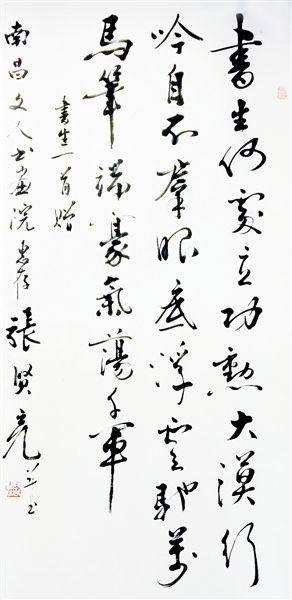 書生何處立功勳大漠行
吟自不羣眼底浮雲馳萬
馬筆端豪氣蕩千軍
書生一首贈
南昌文人书畫院惠存 張賢亮 书